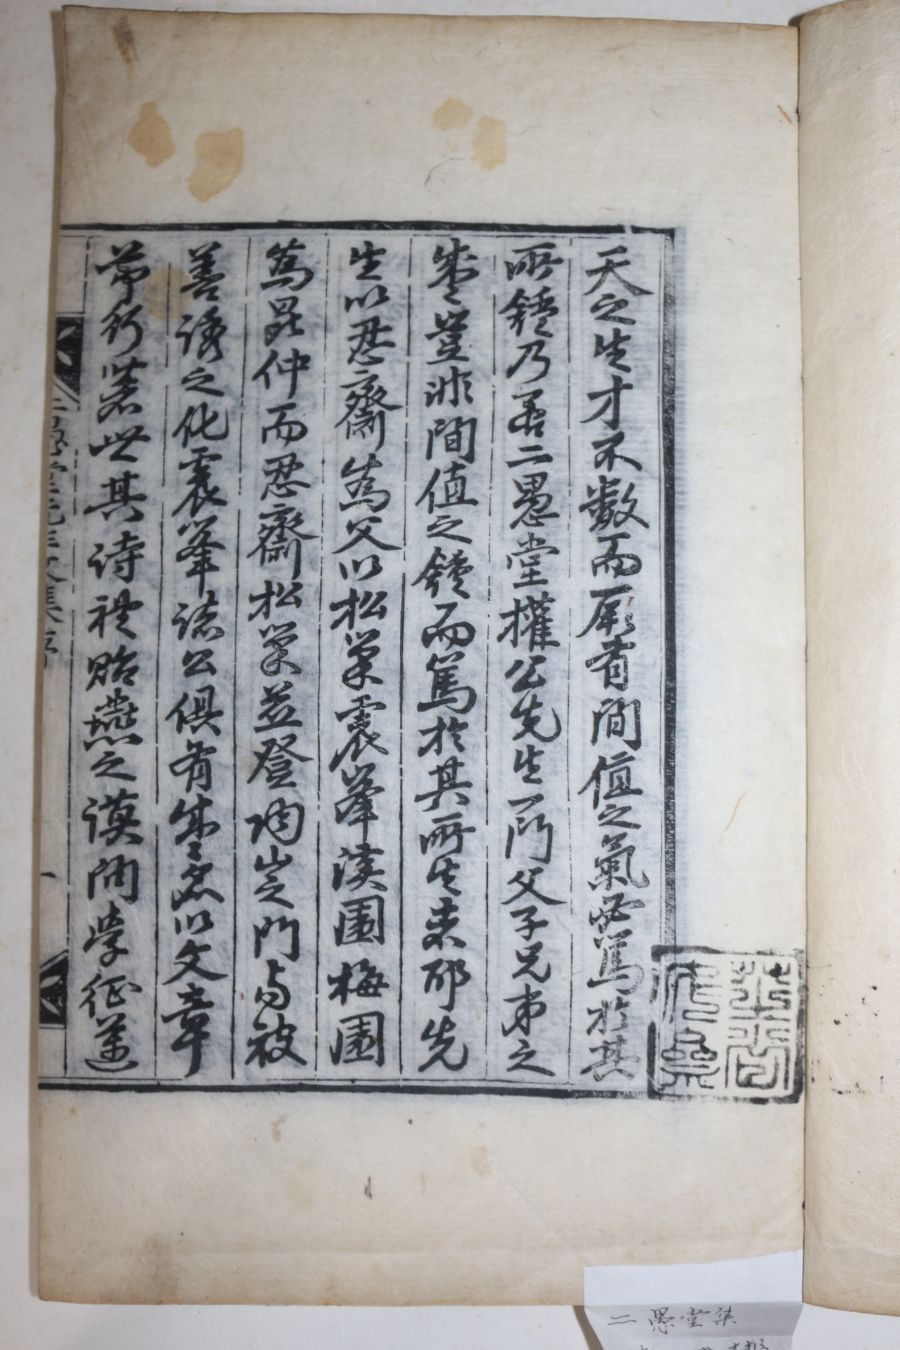 天之生才不數而有間値之氣必篤於其
所鍾乃若二愚堂權公先生一門父子兄弟之
盛豈非間値之鍾而篤於其所生耶先
生以忍齋爲父以松巢震峯漢園梅園
爲昆仲而忍齋松巢並登陶山之門與被
善誘之化震峯諸公俱有盛名以文章
節行著世其詩禮貽燕之謨問學征邁
二愚堂先生文集序
一
二愚堂集